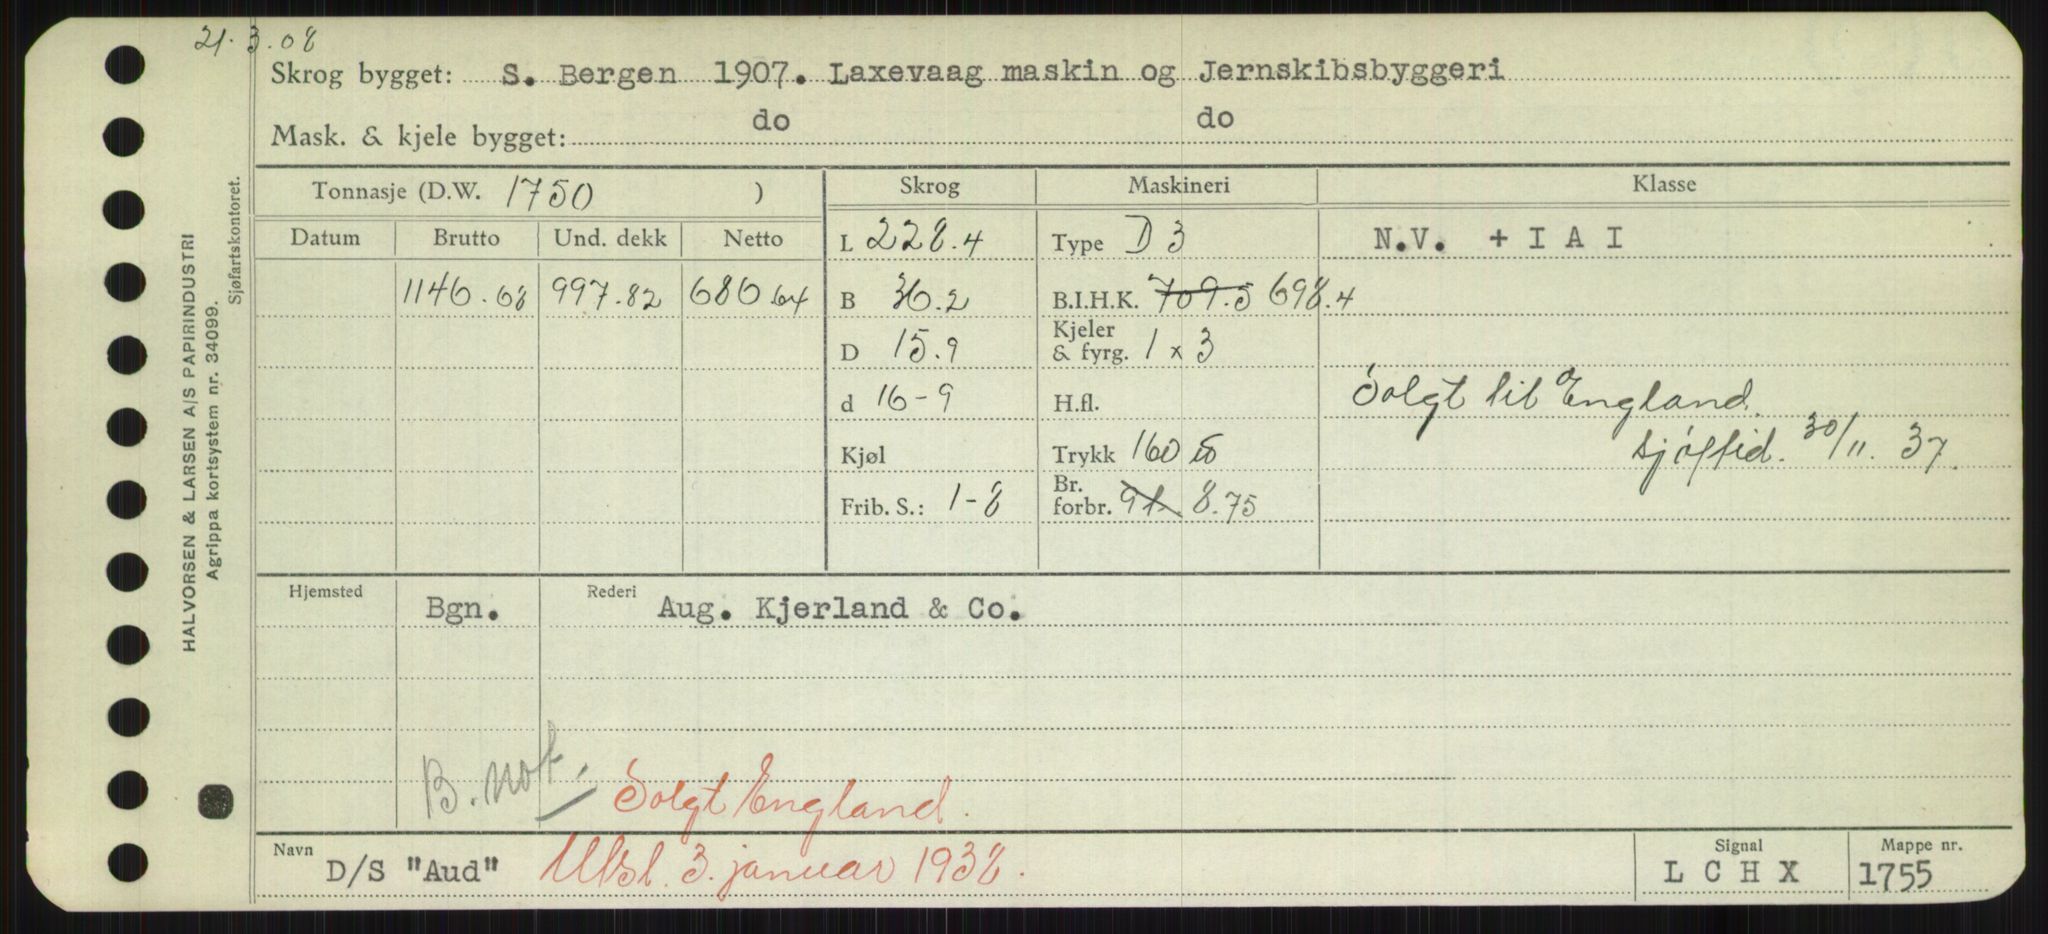 21.3.08
Skrog bygget: S. Bergen 1907. Laxevaag maskin og Jernskibsbyggeri
Mask. & kjele bygget: do do
Tonnasje (D.W. 1750 )
Skrog
Maskineri
Klasse
Datum Brutto Und. dekk Netto
L 228.4
Type D 3
N.V. + I A I
1146.68 997.82 686.64
B 36.2
B.I.H.K. 709.5 698.4
D 15.9
Kjeler
& fyrg. 1 x 3
d 16-9
H.fl.
Solgt til England.
Kjøl
Trykk 160
Sjøftid. 30/11. 37.
Frib. S.: 1-8
Br.
forbr. 9 t. 8.75
Hjemsted Bgn. Rederi Aug. Kjerland & Co.
B. not.
Solgt England.
Navn D/S "Aud" Utsl. 3. januar 1938.
Signal L C H X
Mappe nr. 1755
HALVORSEN & LARSEN A/S PAPIRINDUSTRI
Agrippa kortsystem nr. 34099.
Sjøfartskontoret.